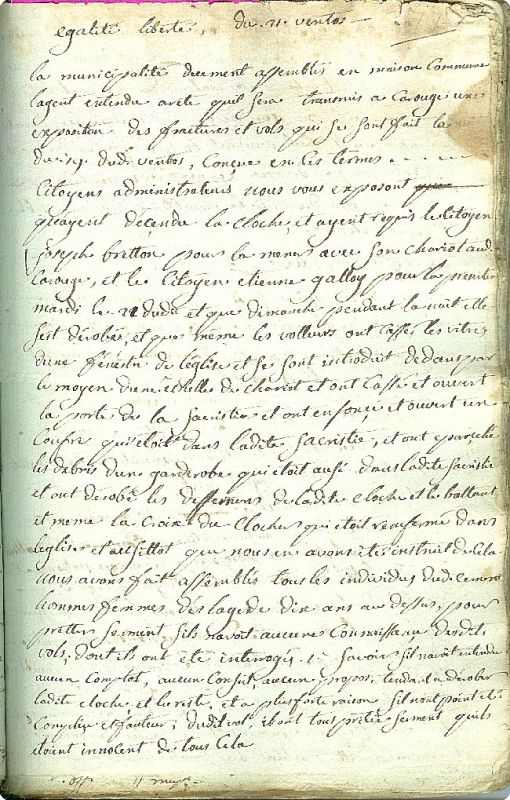 egalité liberté, du 21 ventos
la municipalité duement assemblés en maison Commune
lagent entendu arete quil sera transmis a Carouge une
exposition des fractures et vols qui se sont fait la
du 19 dudt ventos, Conçue en ces termes
Citoyens administrateurs nous vous exposont
quayent decendu la Cloche, et ayent requis le Citoyen
joseph bretton pour la mener avec son Chariot audt
Carouge, et le Citoyen etienne galloy pour la prendre
mardi le 21 dudt et que dimanche pendant la nuit elle
sest dérobés, et que même les volleurs ont Cassé les vitres
dune fénêtre de léglise et se sont introduit dedans par
le moyen dune echelles de Chariot et ont Cassé et ouvert
la porte de la Sacristie et ont enfonce et ouvert un
Coufre qui étoit dans ladite Sacristie, et ont
les debris dun garderobe qui étoit aussi dans ladite Sacristie
et ont derobé les de ladite Cloche et le battant
et meme la Croix du Clocher qui étoit renfermé dans
leglise et aussittot que nous en avons étés instruit de Cela
nous avons fait assemblés tous les individus dudt
hommes femmes dès lage de dix ans au dessus, pour
pretter serment, sils navoit aucunes Connoissence desdits
vols, dont ils ont été interrogés. 1° Savoir sil navoit entendu
aucun Complot, aucun aucun propos, tendant a dérober
ladite cloche et le reste, et a plus forte raison sil nont point été
Complice et fauteur, dudit vol et ont tous pretté serment quils
étoient innocent de tous Cela